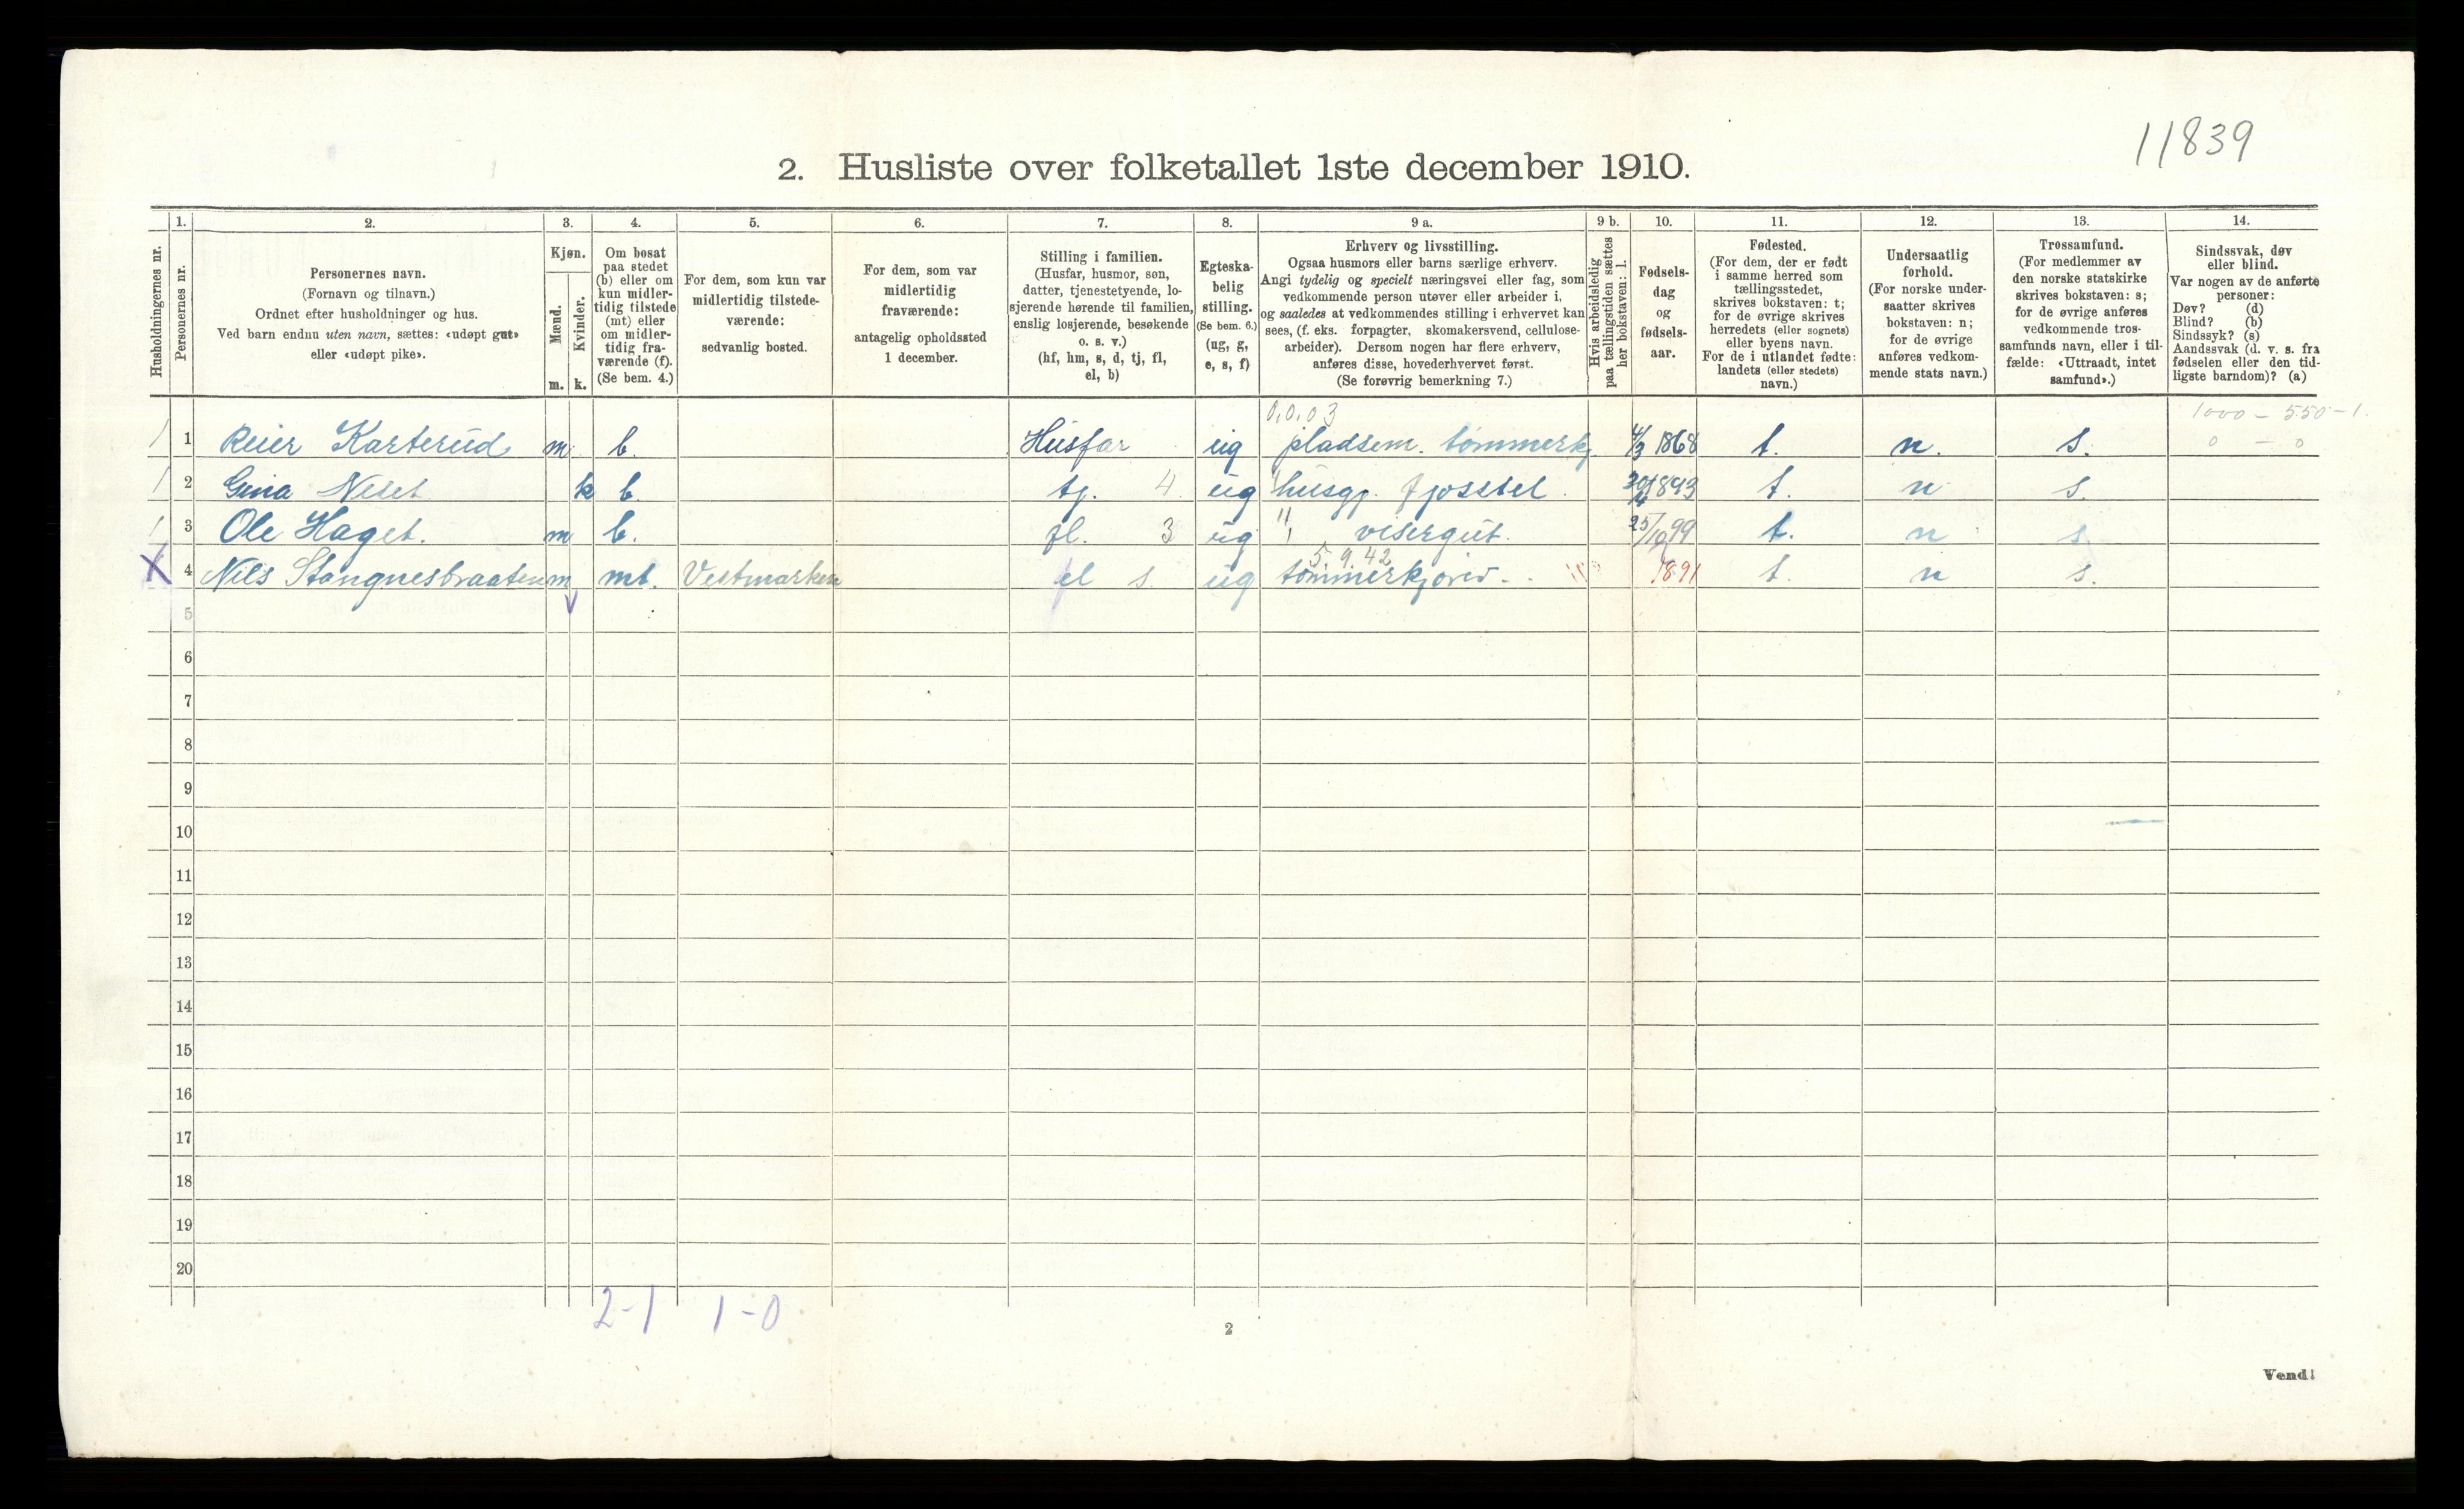 11839
2. Husliste over folketallet 1ste december 1910.
Husholdningernes nr.
1.
Personernes nr.
2.
Personernes navn.
(Fornavn og tilnavn.)
Ordnet efter husholdninger og hus.
Ved barn endnu uten navn, sættes: «udøpt gut»
eller «udøpt pike».
3.
Kjøn.
Mænd.
Kvinder.
m. k.
4.
Om bosat
paa stedet
(b) eller om
kun midler-
tidig tilstede
(mt) eller
om midler-
tidig fra-
værende (f).
(Se bem. 4.)
5.
For dem, som kun var
midlertidig tilstede-
værende:
sedvanlig bosted.
6.
For dem, som var
midlertidig
fraværende:
antagelig opholdssted
1 december.
7.
Stilling i familien.
(Husfar, husmor, søn,
datter, tjenestetyende, lo-
sjerende hørende til familien,
enslig losjerende, besøkende
o. s. v.)
(hf, hm, s, d, tj, fl,
el, b)
8.
Egteska-
belig
stilling.
(Se bem. 6.)
(ug, g,
e, s, f)
9 a.
Erhverv og livsstilling.
Ogsaa husmors eller barns særlige erhverv.
Angi tydelig og specielt næringsvei eller fag, som
vedkommende person utøver eller arbeider i,
og saaledes at vedkommendes stilling i erhvervet kan
sees, (f. eks. forpagter, skomakersvend, cellulose-
arbeider). Dersom nogen har flere erhverv,
anføres disse, hovederhvervet først.
(Se forøvrig bemerkning 7.)
9 b.
Hvis arbeidsledig
paa tællingstiden sættes
her bokstaven: l.
10.
Fødsels-
dag
og
fødsels-
aar.
11.
Fødested.
(For dem, der er født
i samme herred som
tællingsstedet,
skrives bokstaven: t;
for de øvrige skrives
herredets (eller sognets)
eller byens navn.
For de i utlandet fødte:
landets (eller stedets)
navn.)
12.
Undersaatlig
forhold.
(For norske under-
saatter skrives
bokstaven: n;
for de øvrige
anføres vedkom-
mende stats navn.)
13.
Trossamfund.
(For medlemmer av
den norske statskirke
skrives bokstaven: s;
for de øvrige anføres
vedkommende tros-
samfunds navn, eller i til-
fælde: «Uttraadt, intet
samfund».)
14.
Sindssvak, døv
eller blind.
Var nogen av de anførte
personer:
Døv? (d)
Blind? (b)
Sindssyk? (s)
Aandssvak (d. v. s. fra
fødselen eller den tid-
ligste barndom)? (a)
0,0,03 1000 - 550 - 1
1 Reier Karterud m b. Husfar ug pladsem. tømmerkj. 4/3 1868 t. n. s. 0 - 0
2 Gina Neset k b. tj. 4 ug husgj. fjosstel. 1893 t. n s.
3 Ole Haget. m b. fl. 3 ug " visergut. 25/10 99 t. n s.
5.9.42
X 4 Nils Stangnesbraaten m mt. Vestmarken el s. ug tømmerkjører. 1891 t. n s.
5
6
7
8
9
10
11
12
13
14
15
16
17
18
19
20
2-1 1-0
2
Vend!